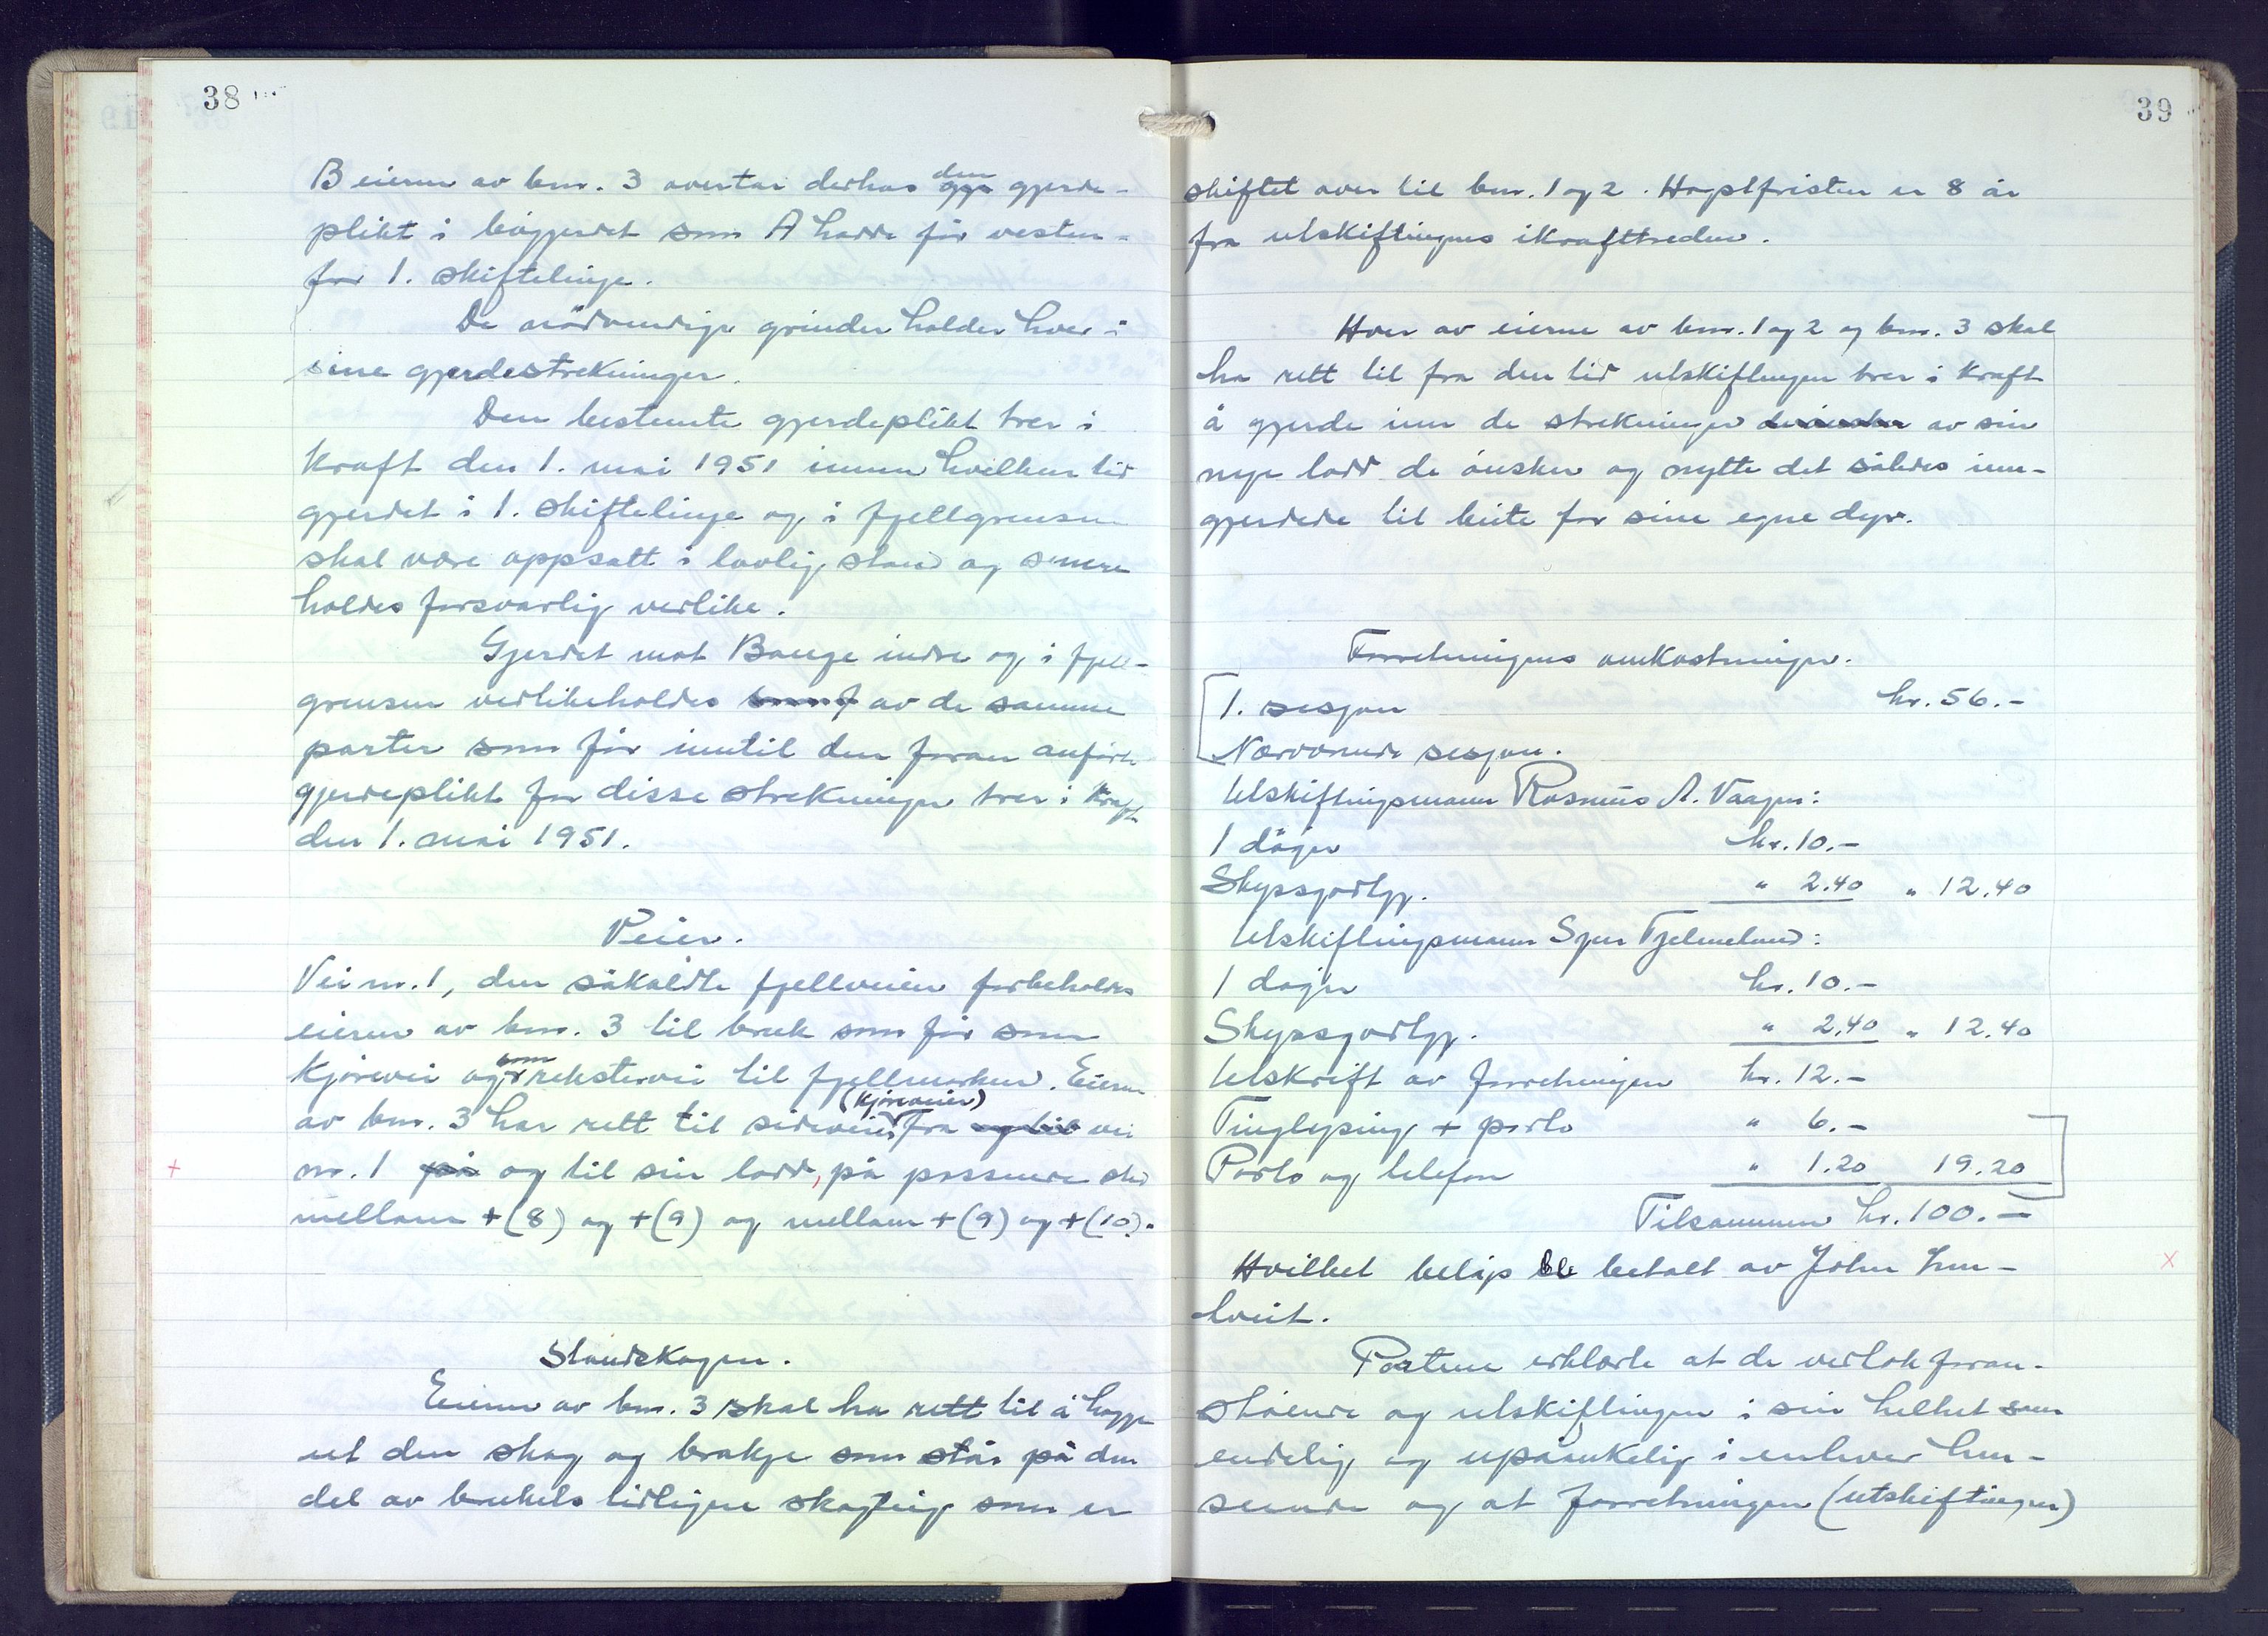 38
B eieren av bnr. 3 overtar derhos den gjerde-
plikt i bögjerdet som A hadde før vesten-
for 1. skiftelinje.
De nødvendige grinder holder hver i
sine gjerdestrekninger.
Den bestemte gjerdeplikt trer i
kraft den 1. mai 1951 innen hvilken tid
gjerdet i 1. skiftelinje og i fjellgrensen
skal være oppsatt i lovlig stand og senere
holdes forsvarlig vedlike.
Gjerdet mot Bauge indre og i fjell-
grensen vedlikeholdes av de samme
parter som før inntil den foran anførte
gjerdeplikt for disse strekninger trer i kraft
den 1. mai 1951.
Veier.
Vei nr. 1, den såkaldte fjellveien forbeholdes
eieren av bnr. 3 til bruk som før som
kjørevei og som rekstevei til fjellmarken. Eieren
av bnr. 3 har rett til sideveier (kjøreveier) fra vei
nr. 1 og til sin lodd, på passende sted
mellom +(8) og +(9) og mellom +(9) og +(10).
Standskogen.
Eieren av bnr. 3 skal ha rett til å hogge
ut den skog og brakje som står på den
del av brukets tidligere skogteig som er
39
skiftet over til bnr. 1 og 2. Hogstfristen er 8 år
fra utskiftingens ikrafttreden.
Hver av eierne av bnr. 1 og 2 og bnr. 3 skal
ha rett til fra den tid utskiftingen trer i kraft
å gjerde inn de strekninger av sin
nye lodd de ønsker og nytte det således inn-
gjerdede til beite for sine egne dyr.
Forretningens omkostninger.
1. sesjon kr. 56.-
Nærværende sesjon.
Utskiftingsmann Rasmus A. Vaagen:
1 døgn kr. 10.-
Skyssgodtgj. " 2.40 " 12.40
Utskiftingsmann Sjur Tjelmeland:
1 døgn kr. 10.-
Skyssgodtgj. " 2.40 " 12.40
Utskrift av forretningen kr. 12.-
Tinglysing + porto " 6.-
Porto og telefon " 1.20 19.20
Tilsammen kr. 100.-
Hvilket beløp ble betalt av John
tveit.
Partene erklærte at de vedtok foran-
stående og utskiftingen i sin helhet som
endelig og upåankelig i enhver hen-
seende og at forretningen (utskiftingen)